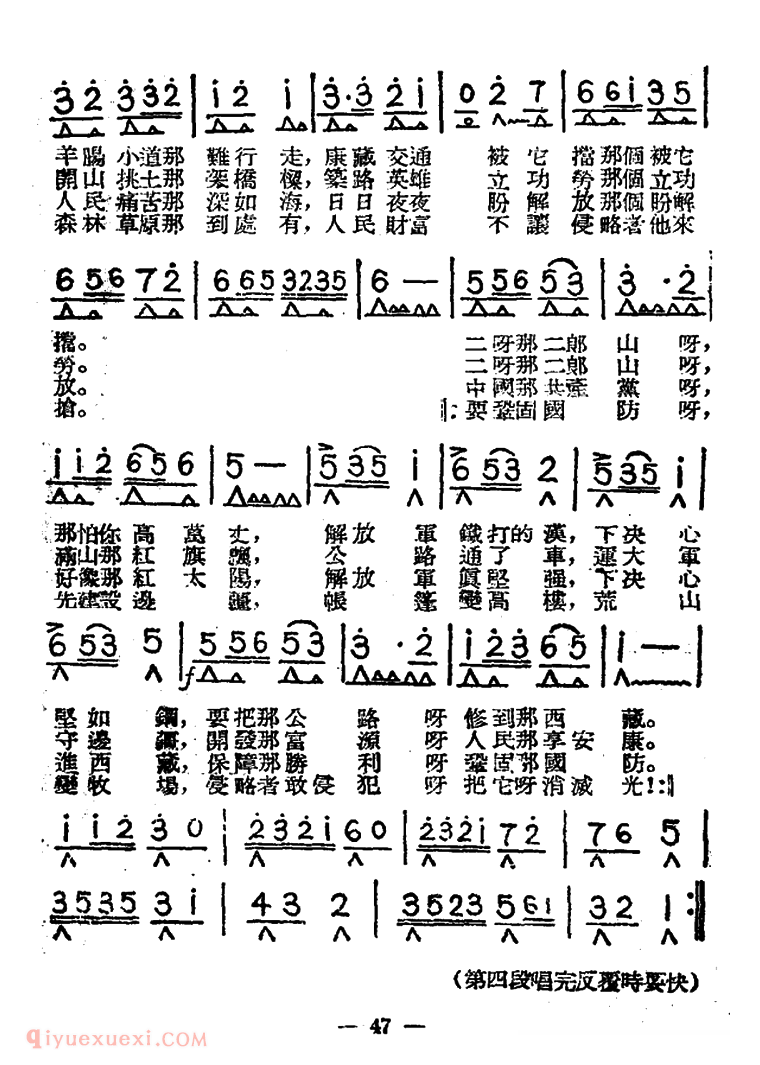 3 2 3 3 2 | i 2 i | 3 · 3 2 i | 0 2 7 | 6 6 i 3 5 |
羊腸小道那難行走，康藏交通被它擋那個被它
開山挑土那架橋樑，築路英雄立功勞那個立功
人民痛苦那深如海，日日夜夜盼解放那個盼解
森林草原那到處有，人民財富不讓侵略者他來
6 5 6 7 2 | 6 6 5 3 2 3 5 | 6 — | 5 5 6 5 3 | 3 · 2 |
擋。二呀那二郎山呀，
勞。二呀那二郎山呀，
放。中國那共產黨呀，
搶。|:要鞏固國防呀，
i i 2 6 5 6 | 5 — | 5 3 5 i | 6 5 3 2 | 5 3 5 i |
那怕你高萬丈，解放軍鐵打的漢，下决心
滿山那紅旗飄，公路通了車，運大軍
好像那紅太陽，解放軍眞堅强，下决心
先建設邊疆，帳篷變高樓，荒山
6 5 3 5 | 5 5 6 5 3 | 3 · 2 | i 2 3 6 5 | i — — |
f
堅如鋼，要把那公路呀修到那西藏。
守邊疆，開發那富源呀人民那享安康。
進西藏，保障那勝利呀鞏固那國防。
變牧場，侵略者敢侵犯呀把它呀消滅光！:|
i i 2 3 0 | 2 3 2 i 6 0 | 2 3 2 i 7 2 | 7 6 5 |
3 5 3 5 3 i | 4 3 2 | 3 5 2 3 5 6 i | 3 2 1 :|
（第四段唱完反覆時要快）
— 47 —
qiyuexuexi.com